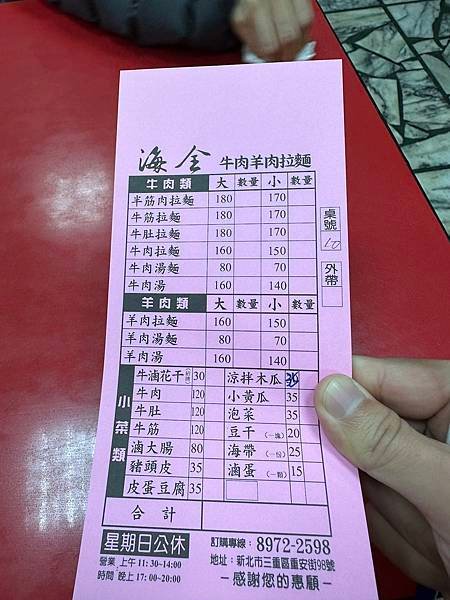 海全 牛肉羊肉拉麵
牛肉類 大 數量 小 數量
半筋肉拉麵 180 170
牛筋拉麵 180 170
牛肚拉麵 180 170
牛肉拉麵 160 150
牛肉湯麵 80 70
牛肉湯 160 140
羊肉類 大 數量 小 數量
羊肉拉麵 160 150
羊肉湯麵 80 70
羊肉湯 160 140
桌號
外帶
小菜類
牛滷花干 30 涼拌木瓜 35
牛肉 120 小黃瓜 35
牛肚 120 泡菜 35
牛筋 120 豆干(一塊) 20
滷大腸 80 海帶(一份) 25
豬頭皮 35 滷蛋(一顆) 15
皮蛋豆腐 35
合計
星期日公休 訂購專線:8972-2598
營業 上午 11:30~14:00 地址:新北市三重區重安街98號
時間 晚上 17:00~20:00 －感謝您的惠顧－